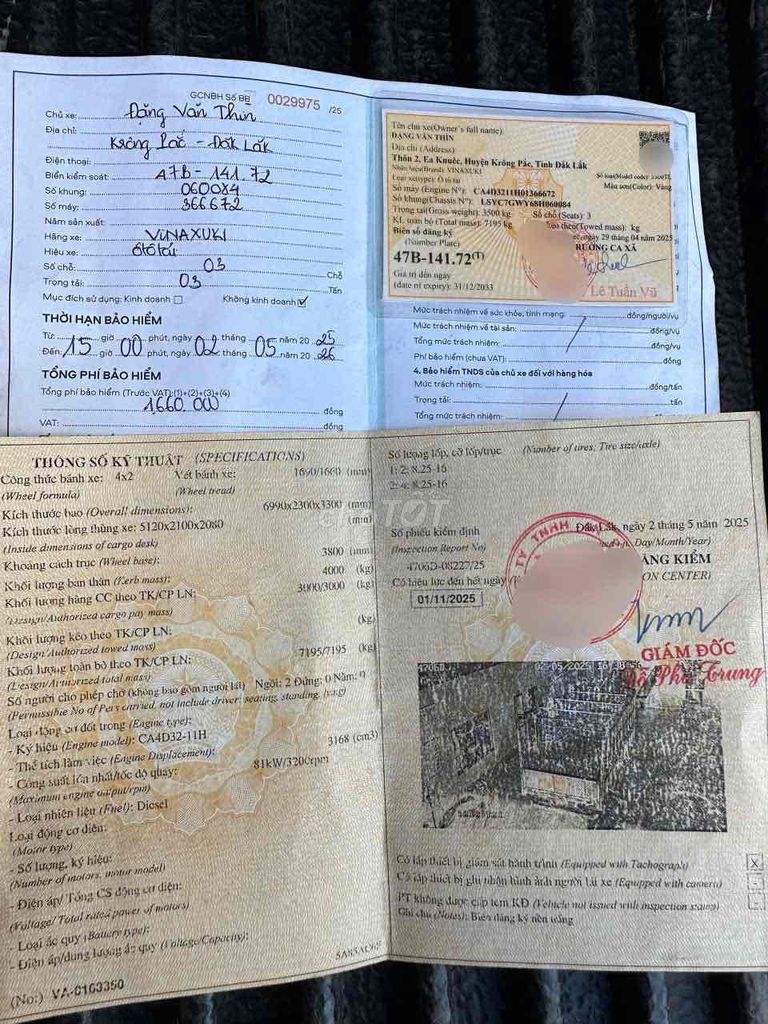 GCNBH Số BB 0029975 /25
Chủ xe: Đặng Văn Thìn
Địa chỉ:
Krông Pắc - Đăk Lăk
Điện thoại:
Biển kiểm soát: 47B - 141.72
Số khung: 060084
Số máy: 366672
Năm sản xuất:
Hãng xe: VINAXUKI
Hiệu xe: ôtô tải
Số chỗ: 03 Chỗ
Trọng tải: 03 Tấn
Mục đích sử dụng: Kinh doanh Không kinh doanh
THỜI HẠN BẢO HIỂM
Từ: giờ phút, ngày tháng năm 20 25
Đến: 15 giờ 00 phút, ngày 02 tháng 05 năm 20 26
TỔNG PHÍ BẢO HIỂM
Tổng phí bảo hiểm (Trước VAT):(1)+(2)+(3)+(4)
1.660.000 đồng
VAT: đồng
Tên chủ xe(Owner's full name):
ĐẶNG VĂN THÌN
Địa chỉ (Address):
Thôn 2, Ea Knuêc, Huyện Krông Pắc, Tỉnh Đắk Lắk
Nhãn hiệu(Brand): VINAXUKI Số loại(Model code): 3500TL
Loại xe(type): Ô tô tải Màu sơn(Color): Vàng
Số máy (Engine N°): CA4D3211H01366672
Số khung(Chassis N°): LSYC7GWY68H060084
Trọng tải(Gross weight): 3500 kg Số chỗ (Seats): 3
KL toàn bộ (Total mass): 7195 kg kéo theo(Towed mass): kg
Biển số đăng ký ngày 29 tháng 04 năm 2025
(Number Plate) TRƯỞNG CA XÃ
47B-141.72(T)
Giá trị đến ngày
(date of expiry): 31/12/2033 Lê Tuấn Vũ
Mức trách nhiệm về sức khỏe, tính mạng: đồng/người/vụ
Mức trách nhiệm về tài sản: đồng/vụ
Tổng mức trách nhiệm: đồng/vụ
Phí bảo hiểm (chưa VAT): đồng
4. Bảo hiểm TNDS của chủ xe đối với hàng hóa
Mức trách nhiệm: đồng/tấn
Trọng tải: tấn
Tổng mức trách nhiệm: đồng/vụ
THÔNG SỐ KỸ THUẬT (SPECIFICATIONS)
Công thức bánh xe: 4x2 Vết bánh xe: 1690/1660 (mm)
(Wheel formula) (Wheel tread)
Kích thước bao (Overall dimensions): 6990x2300x3300 (mm)
Kích thước lòng thùng xe: 5120x2100x2080 (mm)
(Inside dimensions of cargo desk)
Khoảng cách trục (Wheel base): 3800 (mm)
Khối lượng bản thân (Kerb mass): 4000 (kg)
Khối lượng hàng CC theo TK/CP LN: 3000/3000 (kg)
(Design/Authorized cargo pay mass)
Khối lượng kéo theo TK/CP LN: (kg)
(Design/Authorized towed mass)
Khối lượng toàn bộ theo TK/CP LN: 7195/7195 (kg)
(Design/Authorized total mass)
Số người cho phép chở (không bao gồm người lái) Ngồi: 2 Đứng: 0 Nằm: 0
(Permissible No of Pers carried, not include driver: seating, standing, lying)
Loại động cơ đốt trong (Engine type):
- Ký hiệu (Engine model): CA4D32-11H
- Thể tích làm việc (Engine Displacement): 3168 (cm3)
- Công suất lớn nhất/tốc độ quay: 81kW/3200rpm
(Maximum engine output/rpm)
- Loại nhiên liệu (Fuel): Diesel
Loại động cơ điện:
(Motor type)
- Số lượng, ký hiệu:
(Number of motors, motor model)
- Điện áp/ Tổng CS động cơ điện:
(Voltage/ Total rated power of motors)
- Loại ắc quy (Battery type):
- Điện áp/dung lượng ắc quy (Voltage/Capacity):
(No:) VA-0103350
Số lượng lốp, cỡ lốp/trục (Number of tires, Tire size/axle)
1: 2; 8.25-16
2: 4; 8.25-16
Đắk Lắk, ngày 2 tháng 5 năm 2025
Số phiếu kiểm định Day/Month/Year)
(Inspection Report No) ĐĂNG KIỂM
4706D-08227/25 ON CENTER)
Có hiệu lực đến hết ngày
01/11/2025
TY TNHH
GIÁM ĐỐC
Phú Trung
4706D 02/05/2025
Có lắp thiết bị giám sát hành trình (Equipped with Tachograph) X
Có lắp thiết bị ghi nhận hình ảnh người lái xe (Equipped with camera) -
PT không được cấp tem KĐ (Vehicle not issued with inspection stamp) -
Ghi chú (Notes): Biển đăng ký nền trắng